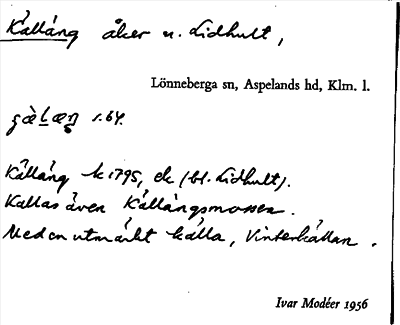 Källäng åker n. Lidhult,
Lönneberga sn, Aspelands hd, Klm. l.
s. 64.
Källäng k 1795, ek (bl. Lidhult).
Kallas även Källängsmossen.
Med en utmärkt källa, Vinterkällan.
Ivar Modéer 1956